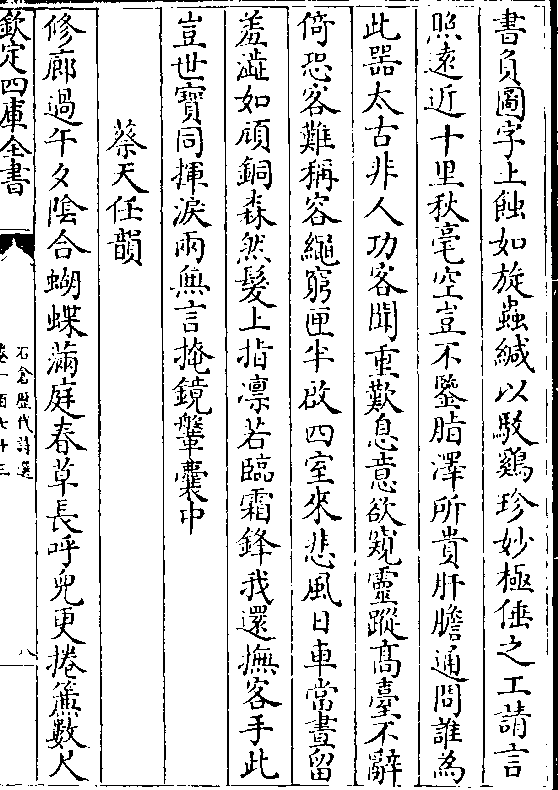 書負圖字上蝕如旋蟲緘以駁鷄珍妙極倕之工請言
照遠近十里秋毫空豈不鑒脂澤所貴肝膽通問誰為
此器太古非人功客聞重歎息意欲窺靈蹤高臺不辭
倚恐客難稱容繩窮匣半啟四室來悲風日車當晝留
羞澁如頑銅森然髮上指凛若臨霜鋒我還撫客手此
豈世寶同揮淚兩無言掩鏡鞶囊中
蔡天任韻
修廊過午夕陰合蝴蝶滿庭春草長呼兒更捲簾數尺
欽定四庫全書
石倉歷代詩選
卷一百七十三
八